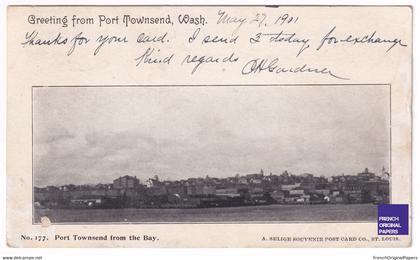 Greeting from Port Townsend, Wash. May 27. 1901
Thanks for your card. I send 3 today for exchange
Kind regards OHGardner
No. 177. Port Townsend from the Bay.
A. SELIGE SOUVENIR POST CARD CO., ST. LOUIS.
FRENCH
ORIGINAL
PAPERS